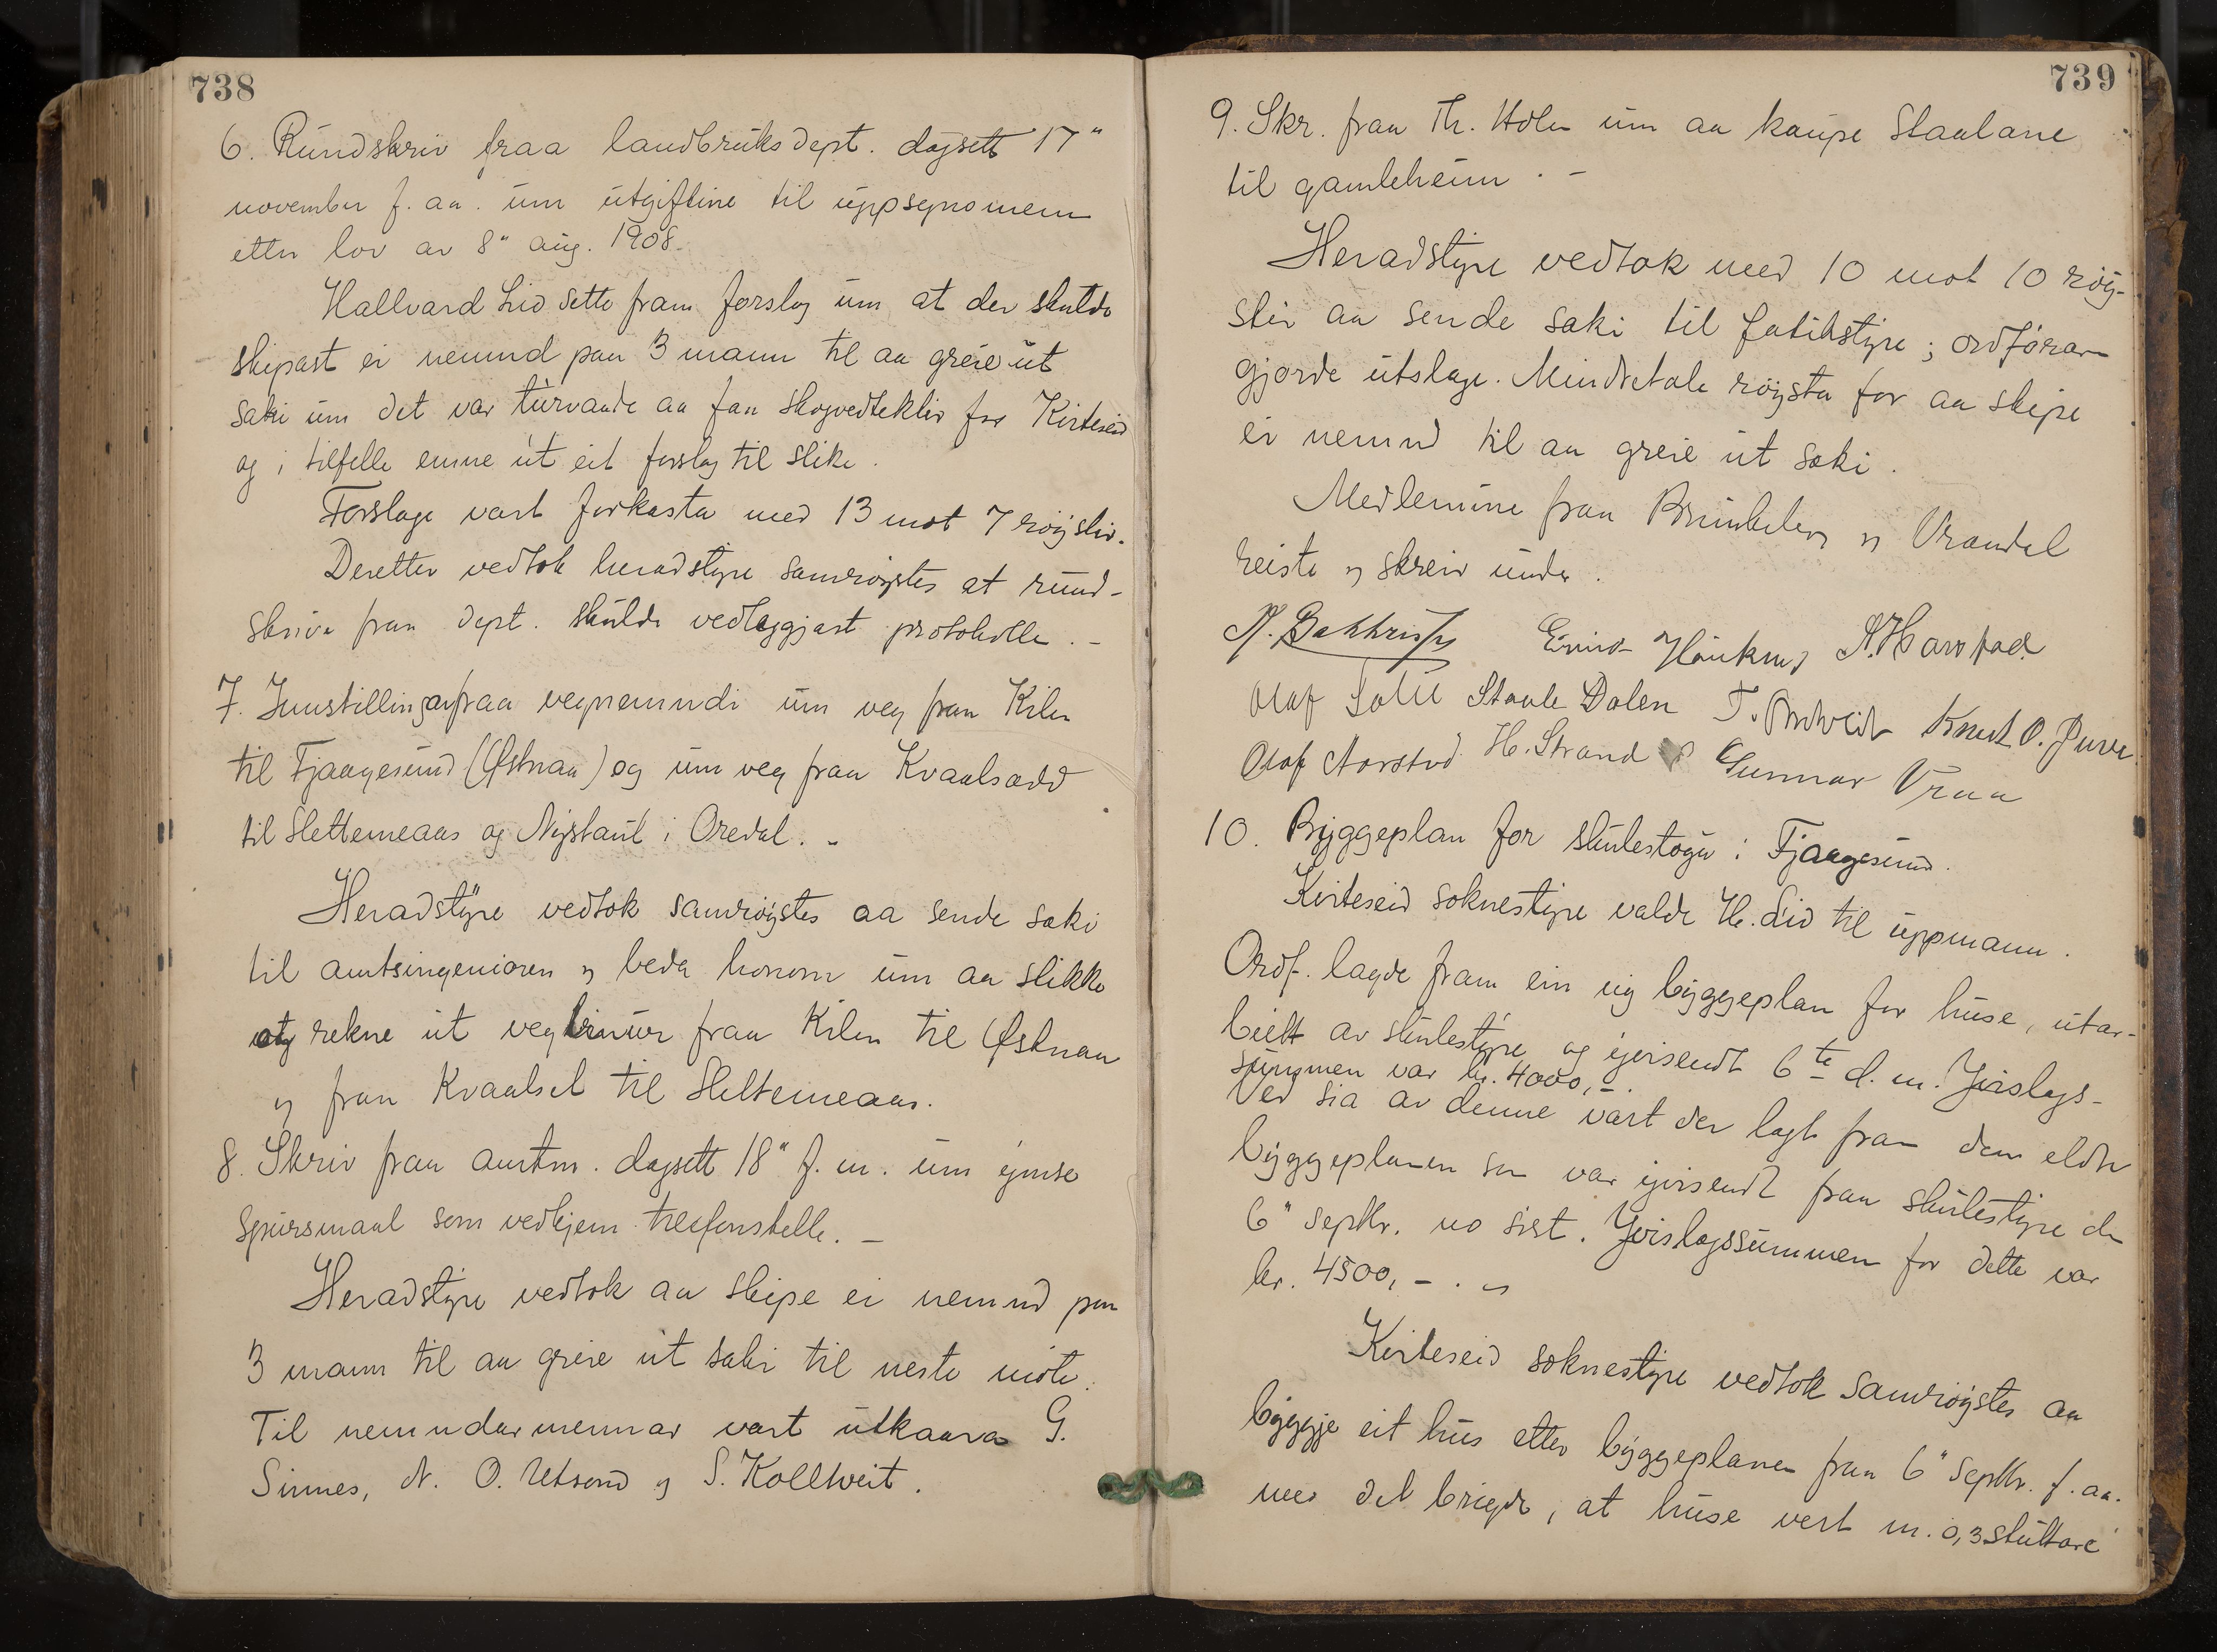 738
6. Rundskriv fraa landbruksdept. dagsett 17"
november f. aa. um utgiftine til uppsynsmenn
etter lov av 8" aug. 1908.
Hallvard Lid sette fram forslag um at der skulde
skipast ei nemnd paa 3 mann til aa greie ut
saki um det var turvande aa faa skogvedtekter for Kviteseid
og i tilfelle emne ut eit forslag til slike.
Forslage vart forkasta med 13 mot 7 røyster.
Deretter vedtok heradstyre samrøystes at rund-
skrive fraa dept. skulde vedleggjast protokolle. -
7. Innstillingar fraa vegnemndi um veg fraa Kilen
til Fjaagesund (Østnaa) og um veg fraa Kvaalsodd
til Slettemeaas og Nystaul i Oredal. -
Heradstyre vedtok samrøystes aa sende saki
til amtsingeniøren og beda honom um aa stikke
og rekne ut veglinur fraa Kilen til Østnaa
og fraa Kvaalsel til Slettemeaas.
8. Skriv fraa amtm. dagsett 18" f. m. um ymse
spursmaal som vedkjem telefonstelle. -
Heradstyre vedtok aa skipe ei nemnd paa
3 mann til aa greie ut saki til neste møte.
Til nemndarmennar vart utkaara G.
Sinnes, N. O. Utsond og S. Kolltveit.
739
9. Skr. fraa Th. Holen um aa kaupe Staalane
til gamleheim. -
Heradstyre vedtok med 10 mot 10 røy-
ster aa sende saki til fatikstyre; ordføraren
gjorde utslage. Mindretale røysta for aa skipe
ei nemnd til aa greie ut saki.
Medlemine fraa Brunkeberg og Vraadal
reiste og skreiv under.
Eivind Haukum A. Harstad
Olaf Staale Dalen T. Knut O. Juve
Olaf Aarstad H. Strand Gunnar Vraa
10. Byggeplan for skulestogu i Fjaagesund.
Kviteseid soknestyre valde H. Lid til uppmann.
Ordf. lagde fram ein ny byggeplan for huse, utar-
beidt av skulestyre og yvisendt 6te d. m. Yvislags-
summen var kr. 4000,-.
Ved sia av denne vart der lagt fram dem eldre
byggeplanen som var yvisendt fraa skulestyre den
6" septbr. no sist. Yvislagssummen for dette var
kr. 4500,-. -
Kviteseid soknestyre vedtok samrøystes aa
byggje eit hus etter byggeplanen fraa 6" septbr. f. aa.
med det brigde, at huse vert m. 0,3 stuttare